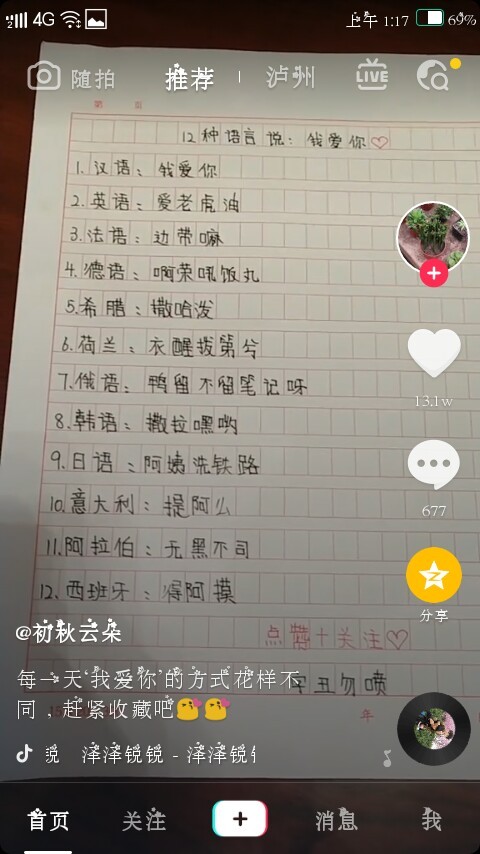 4G 上午 1:17 69%
随拍 推荐 泸州 LIVE
第 页
12种语言说：我爱你♡
1.汉语：我爱你
2.英语：爱老虎油
3.法语：边带嘛
4.德语：啊荣吼饭丸
5.希腊：撒哈泼
6.荷兰：衣醒拔第兮
7.俄语：鸭留不留笔记呀
8.韩语：撒拉嘿哟
9.日语：阿姨洗铁路
10.意大利：提阿么
11.阿拉伯：无黑不司
12.西班牙：得阿摸
13.1w
677
分享
点赞+关注♡
字丑勿喷
@初秋云朵
每一天 我爱你 的方式花样不
同，赶紧收藏吧😘😘
年
泽泽锐锐 - 泽泽锐
首页 关注 消息 我